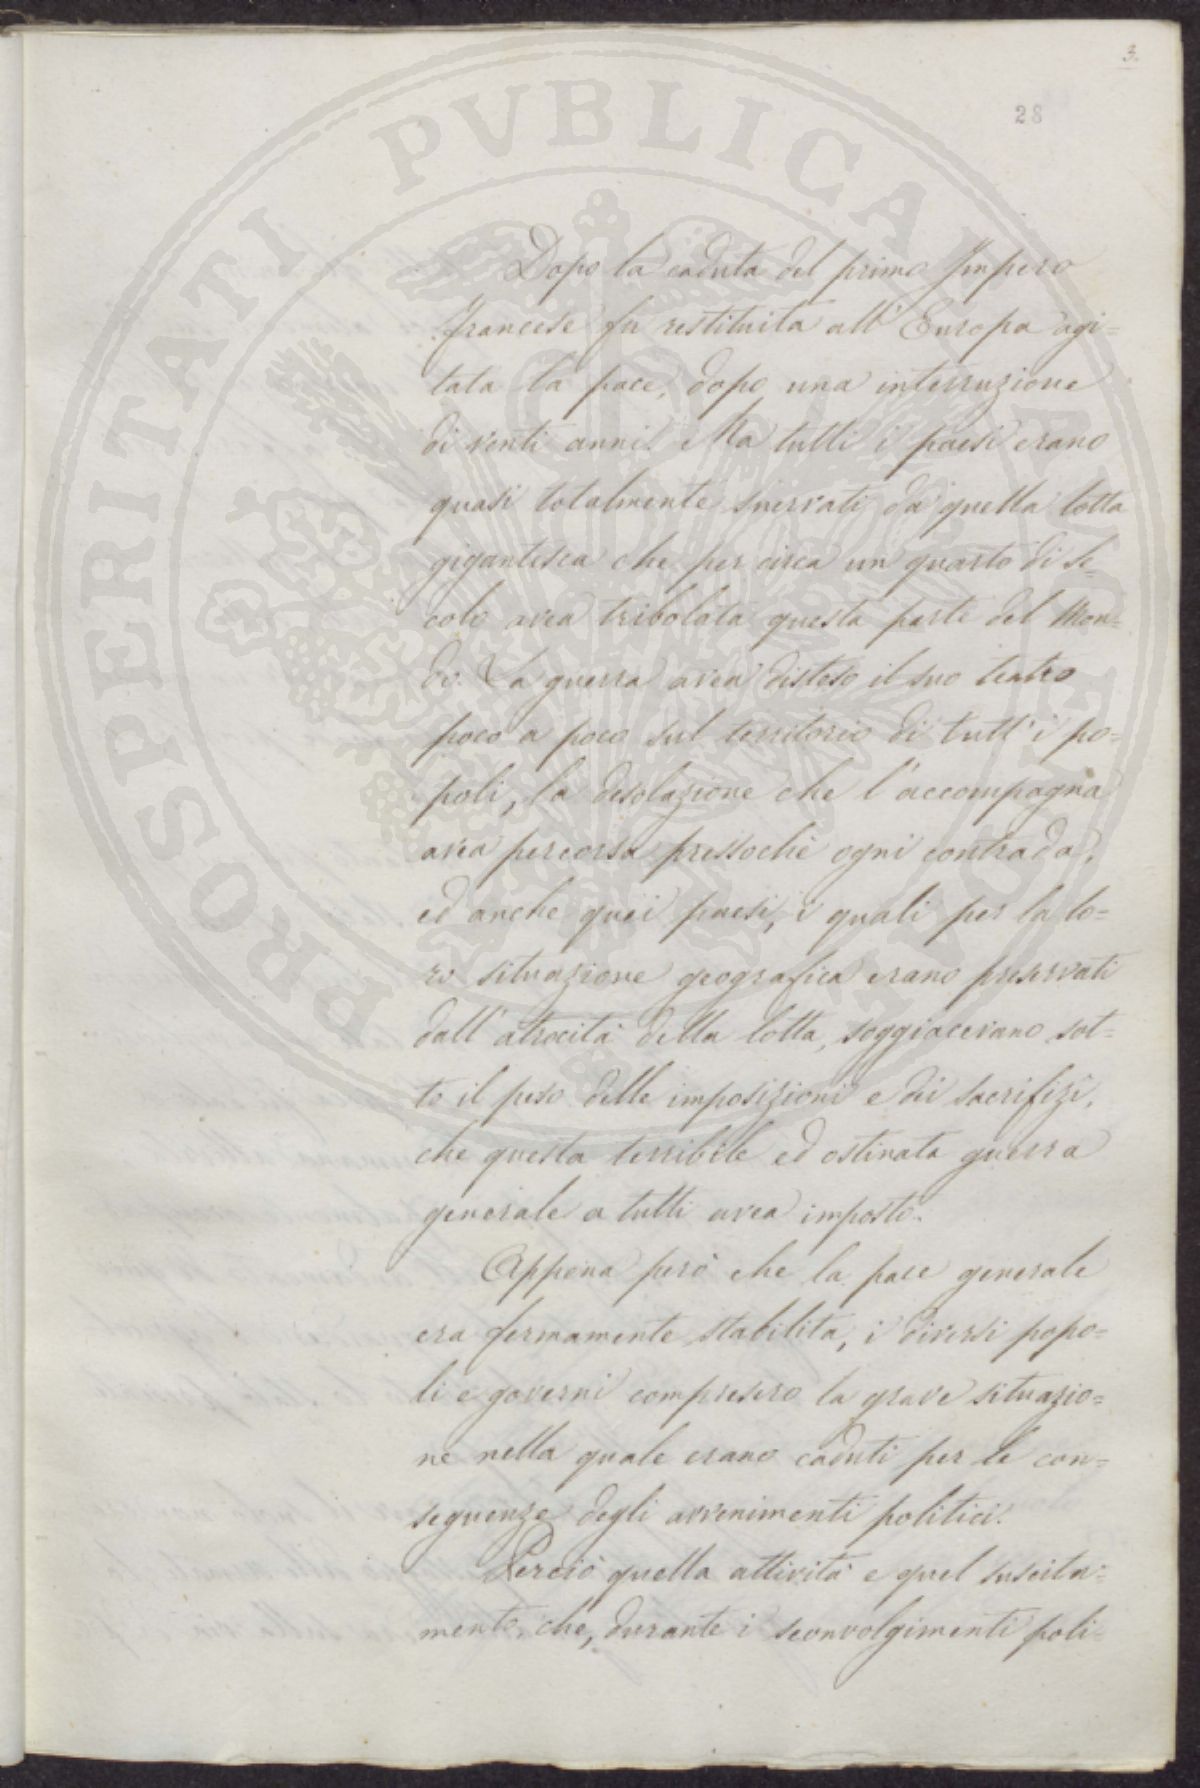 3.
28
PROSPERITATI PVBLICAE AVGENDAE
Dopo la caduta del primo Impero
francese fu restituita all'Europa agi=
tata la pace, dopo una interruzione
di venti anni. Ma tutti i paesi erano
quasi totalmente snervati da quella lotta
gigantesca che per circa un quarto di se=
colo avea tribolata questa parte del Mon=
do. La guerra avea disteso il suo teatro
poco a poco sul territorio di tutt'i po=
poli, la desolazione che l'accompagna
avea percorsa pressochè ogni contrada,
ed anche quei paesi, i quali per la lo=
ro situazione geografica erano preservati
dall'atrocità della lotta, soggiacevano sot=
to il peso delle imposizioni e dei sacrifizi,
che questa terribile ed ostinata guerra
generale a tutti avea imposto.
Appena però che la pace generale
era fermamente stabilita, i diversi popo=
li e governi compresero la grave situazio=
ne nella quale erano caduti per le con=
seguenze degli avvenimenti politici.
Perciò quella attività e quel suscita=
mento, che, durante i sconvolgimenti poli=